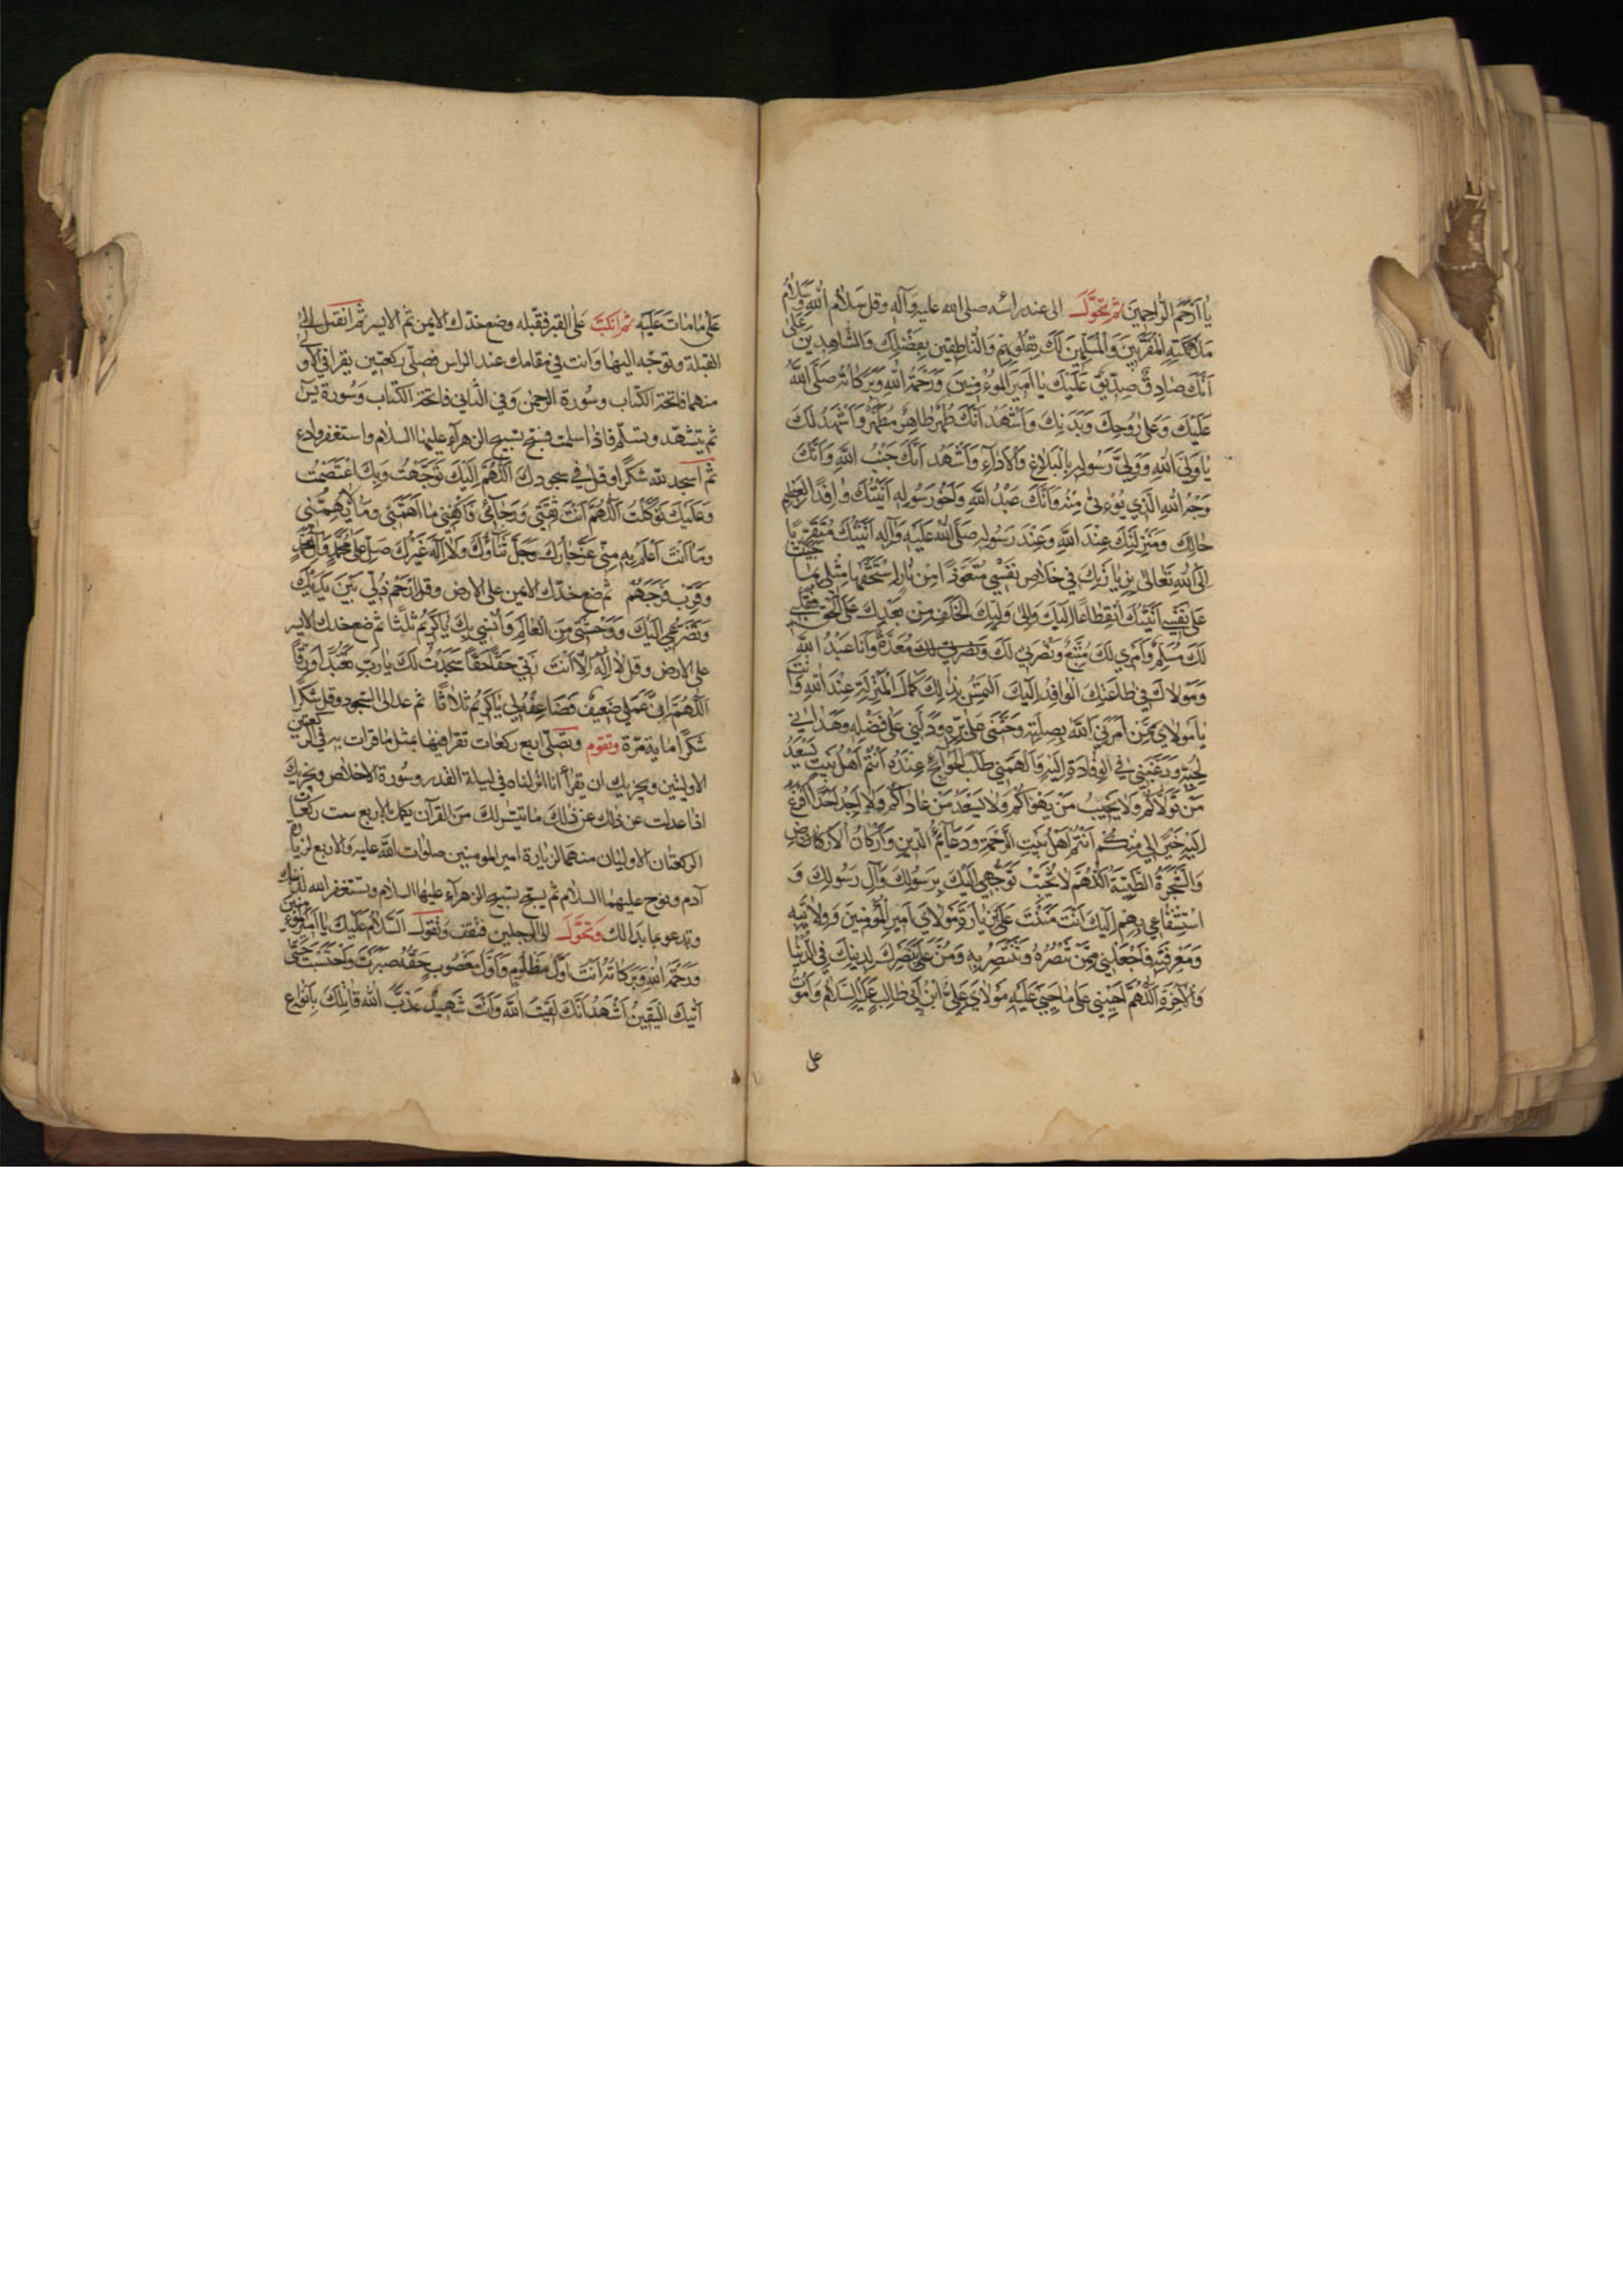 يا ارحم الراحمين ثم تحول الى عند راسه صلى الله عليه وآله وقل سلام الله وسلام
ملائكته المقربين والمسلمين لك بقلوبهم والناطقين بفضلك والشاهدين على
انك صادق صديق عليك يا امير المؤمنين ورحمة الله وبركاته صلى الله
عليك وعلى روحك وبدنك واشهد انك طهر طاهر مطهر واشهد لك
يا ولي الله وولي رسوله بالبلاغ والاداء واشهد انك جنب الله وانك
وجه الله الذي يؤتى منه وانك عبد الله واخو رسوله اتيتك وافدا لعظيم
حالك ومنزلتك عند الله وعند رسوله صلى الله عليه وآله اتيتك متقربا
الى الله تعالى بزيارتك في خلاص نفسي متعوذا من نار استحقها مثلي بما جنيت
على نفسي اتيتك انقطاعا اليك والى وليك الخلف من بعدك على الحق فقلبي
لك مسلم وامري لك متبع ونصرتي لك ونصرتي لك معدة وانا عبد الله
ومولاك في طاعتك الوافد اليك التمس بذلك كمال المنزلة عند الله وانت
يا مولاي ممن امرني الله بصلته وحثني على بره ودلني على فضله وهداني
لحبه ورغبني في الوفادة اليه والهمني طلب الحوائج عنده انتم اهل بيت يسعد
من تولاكم ولا يخيب من يهواكم ولا يسعد من عاداكم ولا اجد احدا افزع
اليه خيرا لي منكم انتم اهل بيت الرحمة ودعائم الدين واركان الارض
والشجرة الطيبة اللهم لا تخيب توجهي اليك برسولك وآل رسولك و
استشفاعي بهم اليك انت مننت علي بزيارة مولاي امير المؤمنين وولايته
ومعرفته فاجعلني ممن تنصره وتنتصر به ومن علي بنصرك لدينك في الدنيا
والآخرة اللهم احيني على ما حيي عليه مولاي علي ابن ابي طالب عليه السلام واموت
على
على ما مات عليه ثم انكب على القبر فقبله وضع خدك الايمن ثم الايسر ثم انفتل الى
القبلة وتوجه اليها وانت في مقامك عند الراس فصلى ركعتين يقرا في الاولى
منهما فاتحة الكتاب وسورة الرحمن وفي الثاني فاتحة الكتاب وسورة يس
ثم يتشهد وتسلم فاذا سلمت فسبح تسبيح الزهرآء عليها السلام واستغفر وادع
ثم اسجد لله شكرا وقل في سجودك اللهم اليك توجهت وبك اعتصمت
وعليك توكلت اللهم انت ثقتي ورجائي فاكفني ما اهمني وما لا يهمني
وما انت اعلم به مني عز جارك وجل ثناؤك ولا اله غيرك صل على محمد وآل محمد
وقرب فرجهم ثم ضع خدك الايمن على الارض وقل ارحم ذلي بين يديك
وتضرعي اليك ووحشتي من العالم وانسي بك يا كريم ثلثا ثم ضع خدك الايسر
على الارض وقل لا اله الا انت ربي حقا حقا سجدت لك يا رب تعبدا ورقا
اللهم ان عملي ضعيف فضاعفه لي يا كريم ثلاثا ثم عد الى السجود وقل شكرا
شكرا ماية مرة وتقوم وتصلي اربع ركعات تقرا فيها بمثل ما قرات به في الركعتين
الاوليتين ويجزيك ان يقرأ انا انزلناه في ليلة القدر وسورة الاخلاص ويجزيك
اذا عدلت عن ذلك عن ذلك ما تيسر لك من القرآن يكمل بالاربع ست ركعات
الركعتان الاوليان منهما لزيارة امير المومنين صلوات الله عليه والاربع لزيارة
آدم ونوح عليهما السلام ثم يسبح تسبيح الزهرآء عليها السلام وتستغفر الله لذنبك
وتدعو بما بدا لك وتحول الى الرجلين فتقف وتقول السلام عليك يا امير المؤمنين
ورحمة الله وبركاته انت اول مظلوم واول مغصوب حقه صبرت واحتسبت حتى
اتيك اليقين اشهد انك لقيت الله وانت شهيد عذب الله قاتلك بانواع